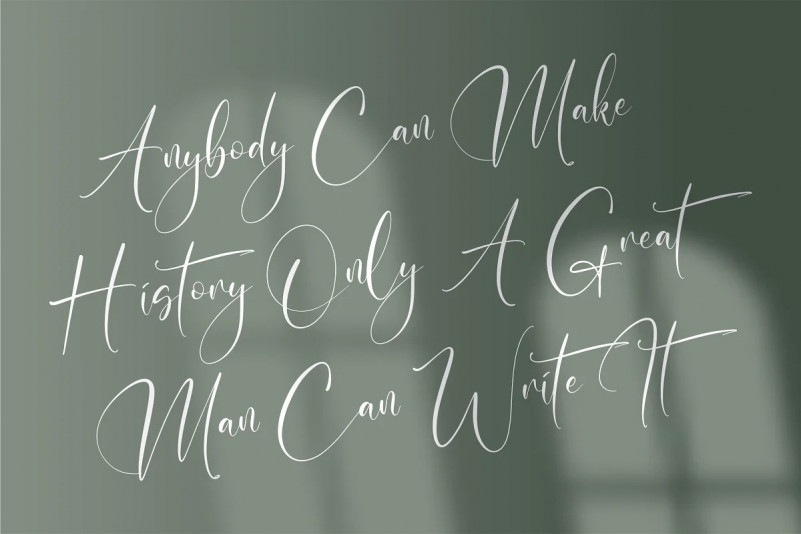 Anybody Can Make
History Only A Great
Man Can Write It